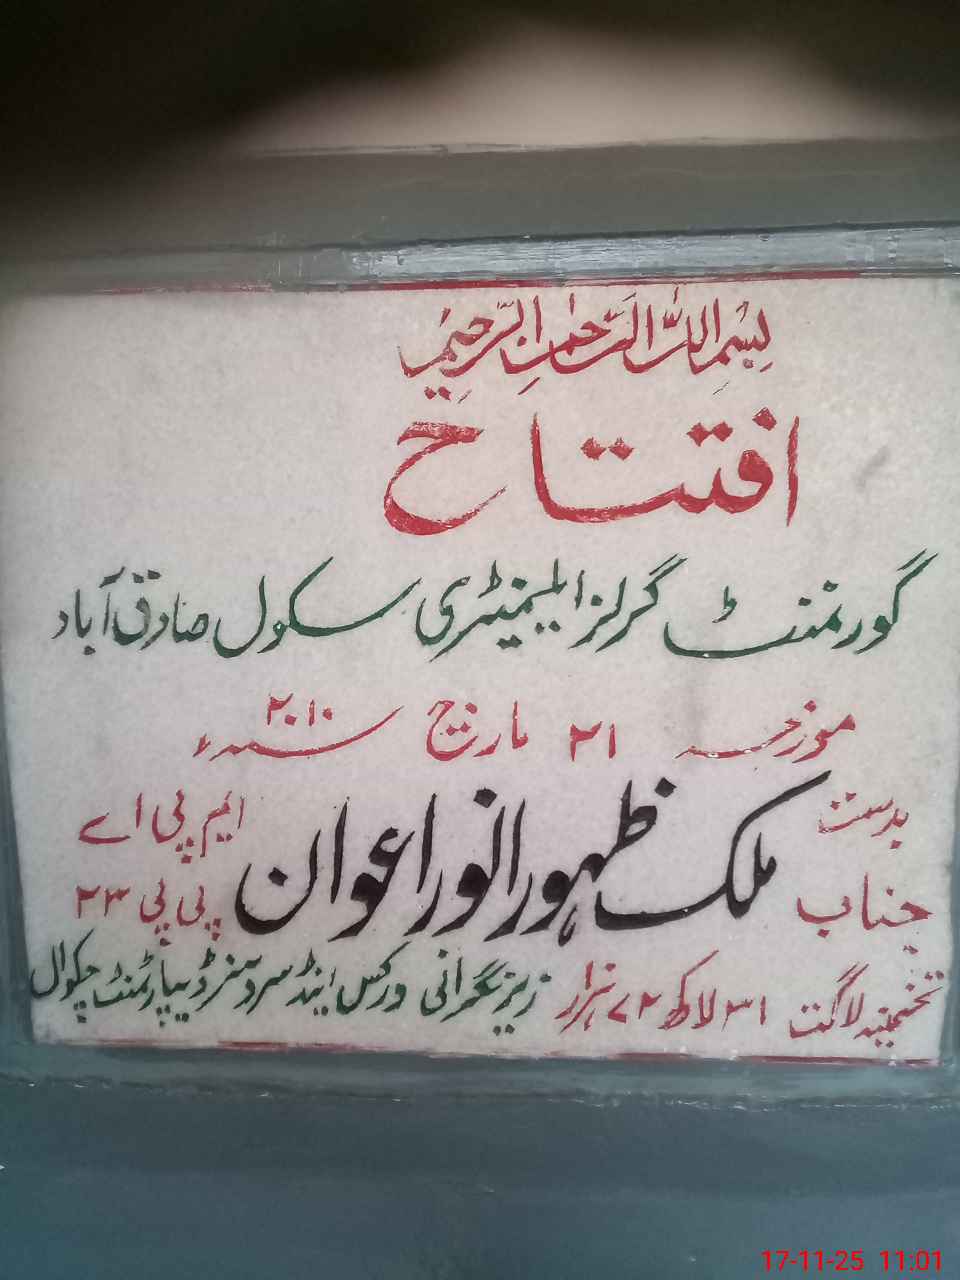 بسم اللہ الرحمٰن الرحیم
افتتاح
گورنمنٹ گرلز ایلیمینٹری سکول صادق آباد
مورخہ ۲۱ مارچ ۲۰۱۰ سنہء
بدست جناب ملک ظہور انور اعوان ایم پی اے پی پی ۲۳
تخمینہ لاگت ۳۱ لاکھ ۷۲ ہزار زیر نگرانی ورکس اینڈ سروسز ڈیپارٹمنٹ چکوال
17-11-25 11:01